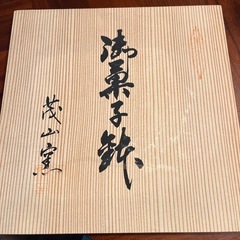 御菓子鉢
茂山窯